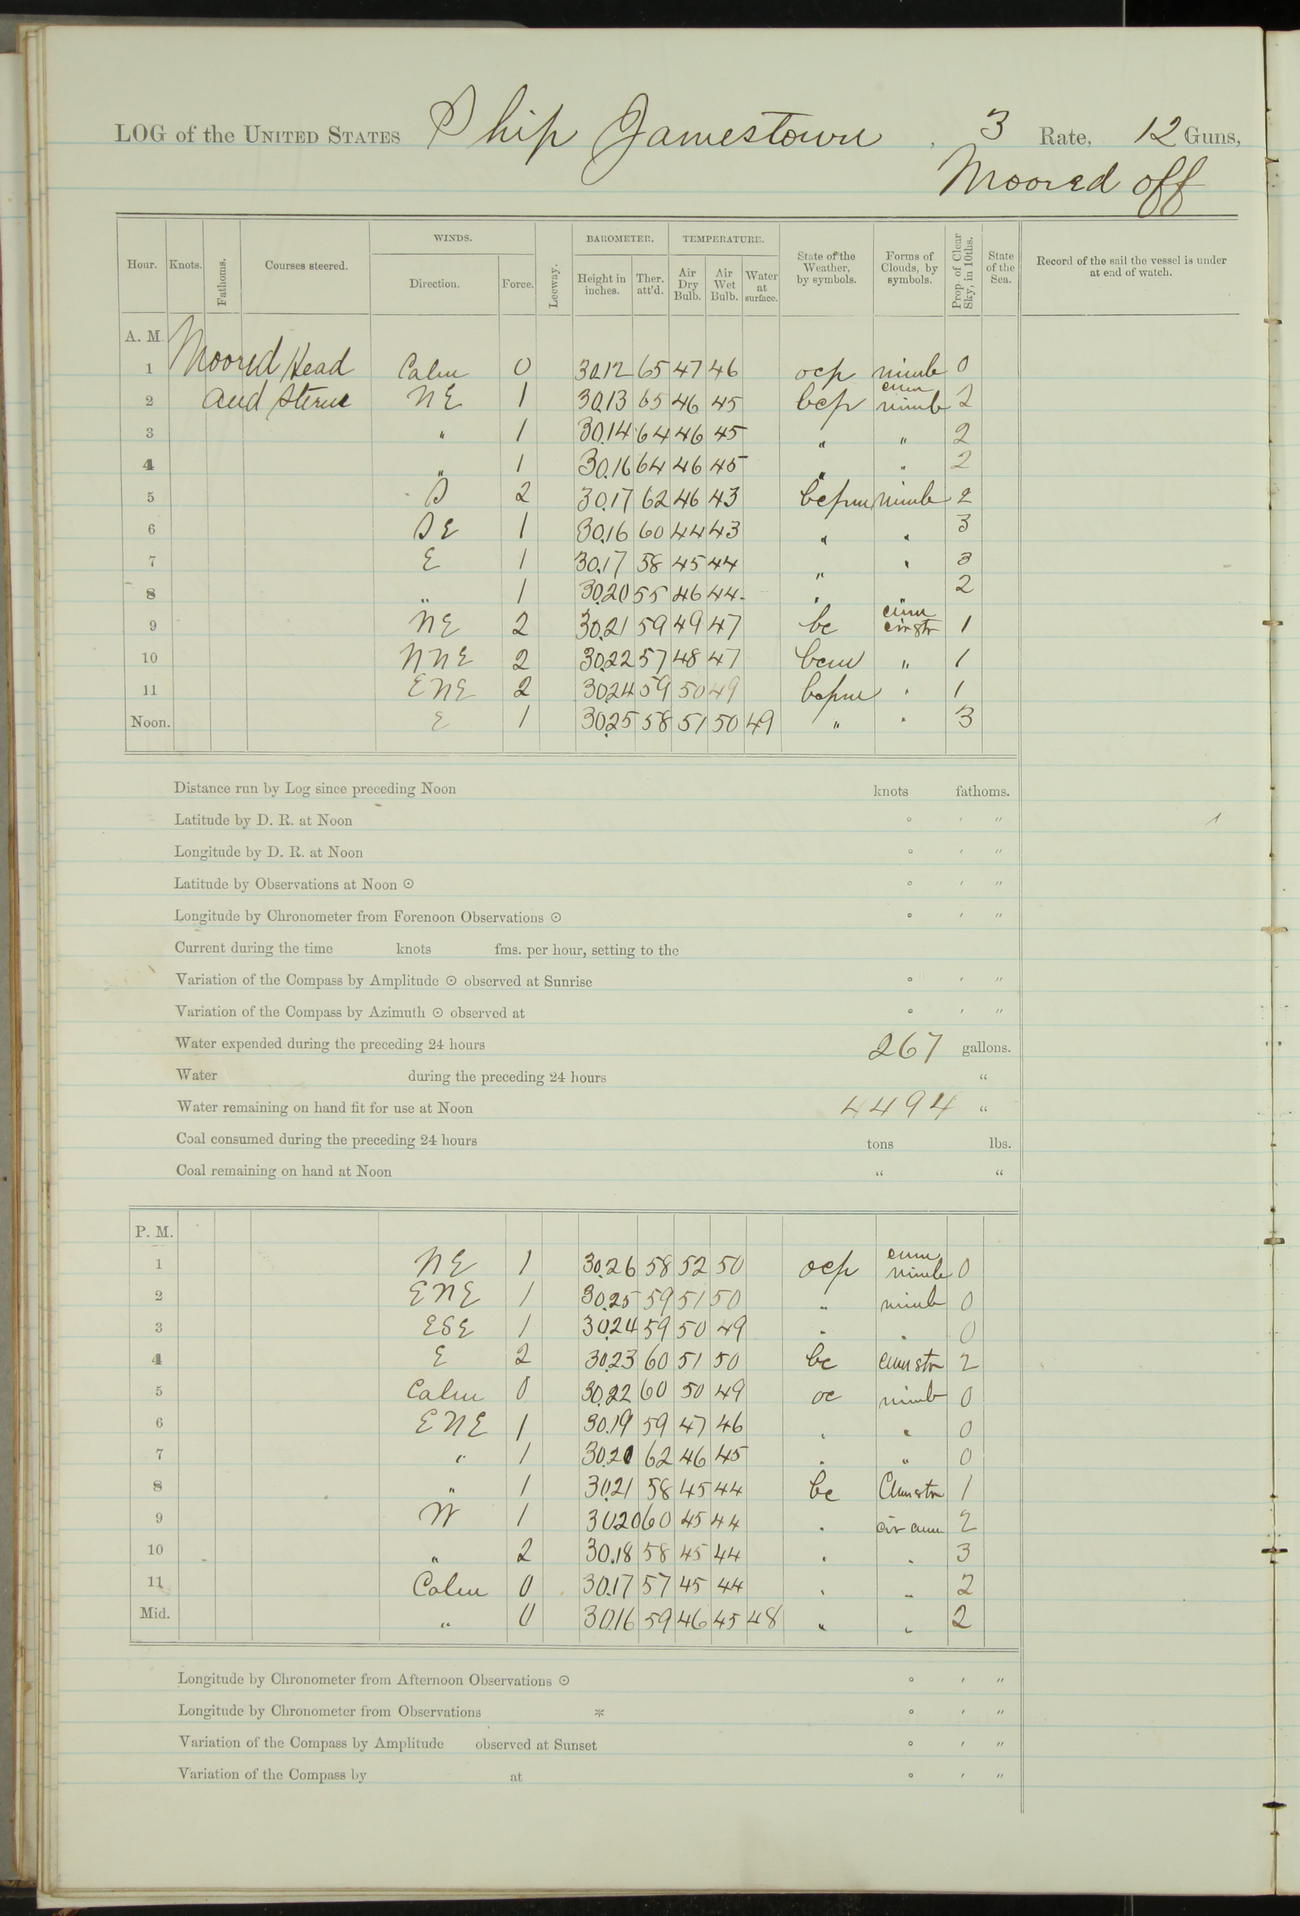 LOG of the UNITED STATES Ship Jamestown, 3 Rate, 12 Guns,
Moored off
Hour. Knots. Fathoms. Courses steered. WINDS. Direction. Force. Leeway. BAROMETER. Height in inches. Ther. att'd. TEMPERATURE. Air Dry Bulb. Air Wet Bulb. Water at surface. State of the Weather, by symbols. Forms of Clouds, by symbols. Prop. of Clear Sky, in 10ths. State of the Sea. Record of the sail the vessel is under at end of watch.
A. M.
1 Moored Head Calm 0 30.12 65 47 46 ocp nimb 0
2 and Stern NE 1 30.13 65 46 45 bcp cum nimb 2
3 " 1 30.14 64 46 45 " " 2
4 " 1 30.16 64 46 45 " " 2
5 S 2 30.17 62 46 43 bcpm nimb 2
6 SE 1 30.16 60 44 43 " " 3
7 E 1 30.17 58 45 44 " " 3
8 " 1 30.20 55 46 44 " " 2
9 NE 2 30.21 59 49 47 bc cum cir str 1
10 NNE 2 30.22 57 48 47 bcm " 1
11 ENE 2 30.24 59 50 49 bcpm " 1
Noon. E 1 30.25 58 51 50 49 " " 3
Distance run by Log since preceding Noon knots fathoms.
Latitude by D. R. at Noon ° ′ ″
Longitude by D. R. at Noon ° ′ ″
Latitude by Observations at Noon ☉ ° ′ ″
Longitude by Chronometer from Forenoon Observations ☉ ° ′ ″
Current during the time knots fms. per hour, setting to the
Variation of the Compass by Amplitude ☉ observed at Sunrise ° ′ ″
Variation of the Compass by Azimuth ☉ observed at ° ′ ″
Water expended during the preceding 24 hours 267 gallons.
Water during the preceding 24 hours "
Water remaining on hand fit for use at Noon 4494 "
Coal consumed during the preceding 24 hours tons lbs.
Coal remaining on hand at Noon " "
P. M.
1 NE 1 30.26 58 52 50 ocp cum nimb 0
2 ENE 1 30.25 59 51 50 " nimb 0
3 ESE 1 30.24 59 50 49 " " 0
4 E 2 30.23 60 51 50 bc cum str 2
5 Calm 0 30.22 60 50 49 oc nimb 0
6 ENE 1 30.19 59 47 46 " " 0
7 " 1 30.20 62 46 45 " " 0
8 " 1 30.21 58 45 44 bc Cum str 1
9 W 1 30.20 60 45 44 " cir cum 2
10 " 2 30.18 58 45 44 " " 3
11 Calm 0 30.17 57 45 44 " " 2
Mid. " 0 30.16 59 46 45 48 " " 2
Longitude by Chronometer from Afternoon Observations ☉ ° ′ ″
Longitude by Chronometer from Observations * ° ′ ″
Variation of the Compass by Amplitude observed at Sunset ° ′ ″
Variation of the Compass by at ° ′ ″